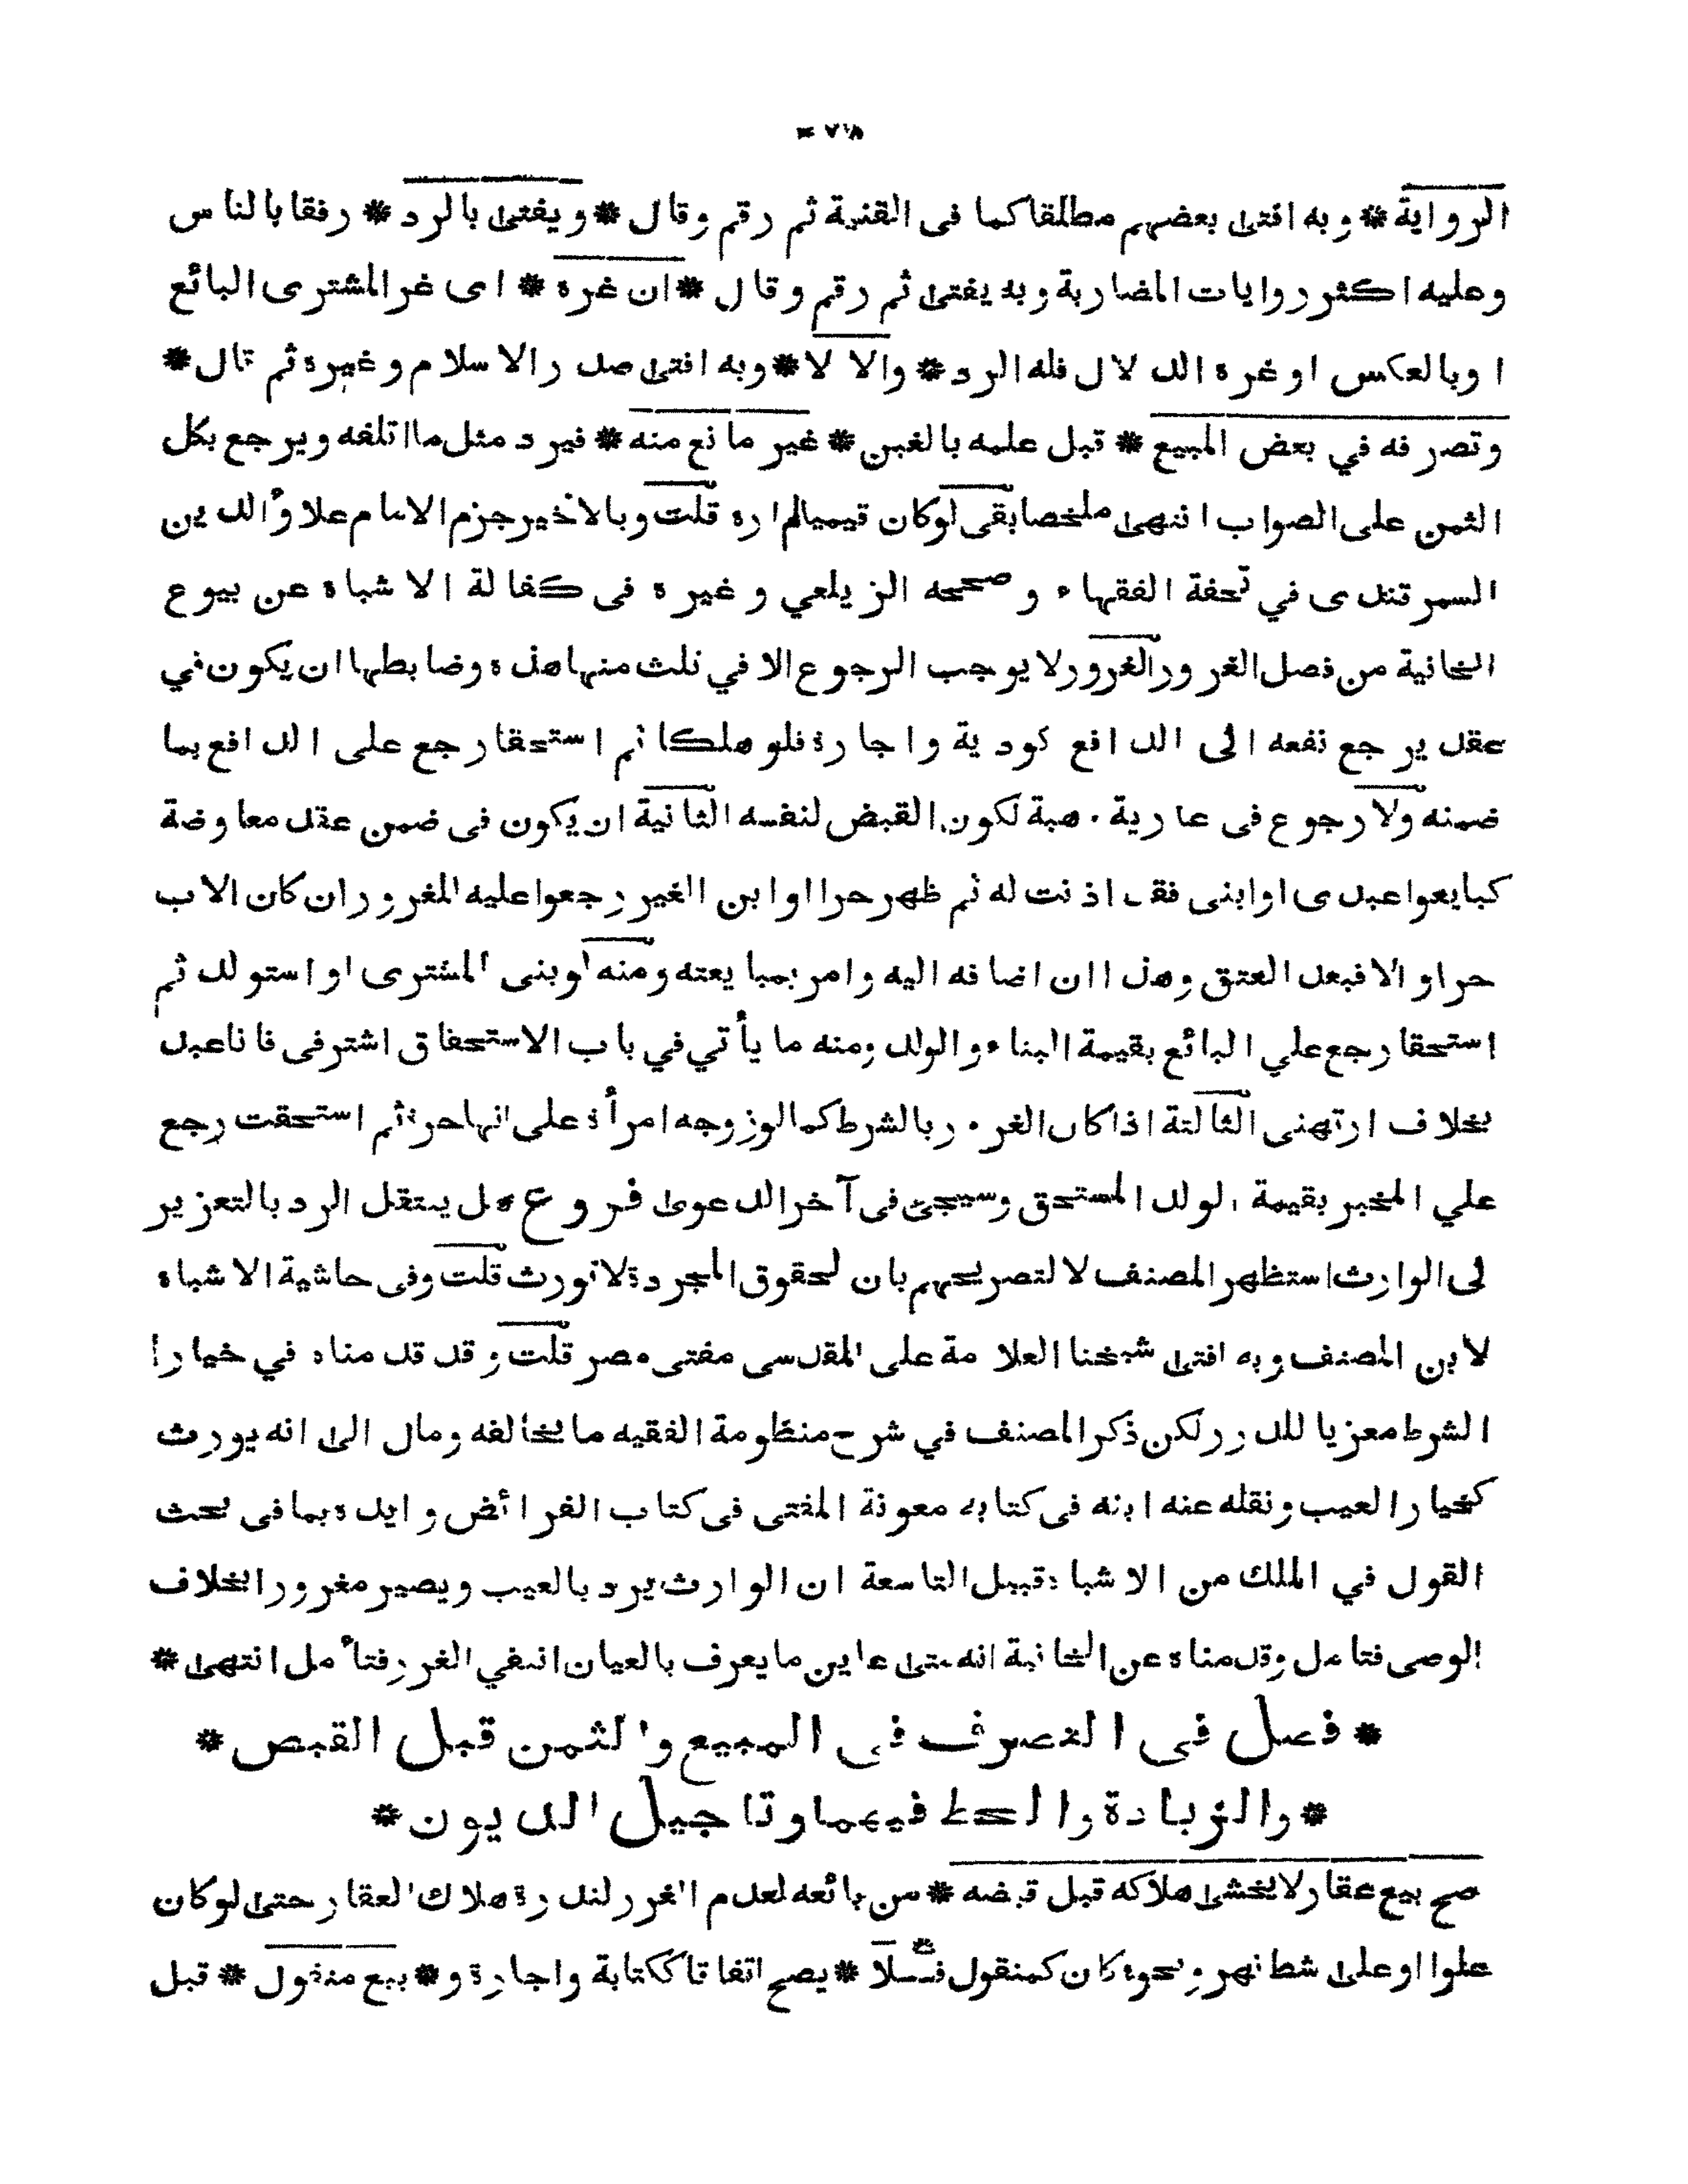 الرواية * وبه افتى بعضهم مطلقا كما فى القنية ثم رقم وقال * ويفتى بالرد * رفقا بالناس
وعليه اكثر روايات المضاربة وبه يفتى ثم رقم وقال * ان غره * اى غر المشترى البائع
او بالعكس او غره الدلال فله الرد * والا لا * وبه افتى صدر الاسلام وغيره ثم قال *
وتصرفه في بعض المبيع * قبل علمه بالغبن * غير مانع منه * فيرد مثل ما اتلفه ويرجع بكل
الثمن على الصواب انتهى ملخصا بقى لو كان قيميا لم اره قلت وبالاخير جزم الامام علاؤالدين
السمرقندى في تحفة الفقهاء وصححه الزيلعي وغيره فى كفالة الاشباه عن بيوع
الخانية من فصل الغرور والغرور لا يوجب الرجوع الا في ثلث منها هذه وضابطها ان يكون في
عقد يرجع نفعه الى الدافع كودية واجارة فلو هلكا ثم استحقا رجع على الدافع بما
ضمنه ولا رجوع فى عارية وهبة لكون القبض لنفسه الثانية ان يكون فى ضمن عقد معاوضة
كبايعوا عبدى او ابنى فقد اذنت له ثم ظهر حرا او ابن الغير رجعوا عليه المغرور ان كان الاب
حرا والا فبعد العتق وهذا ان اضافه اليه وامر بمبايعته ومنه لو بنى المشترى او استولد ثم
استحقا رجع علي البائع بقيمة البناء والولد ومنه ما يأتي في باب الاستحقاق اشترفى فانا عبد
بخلاف ارتهنى الثالثة اذا كان الغرور بالشرط كما لو زوجه امرأة على انها حرة ثم استحقت رجع
علي المخبر بقيمة الولد المستحق وسيجئ فى آخر الدعوى فروع هل ينتقل الرد بالتعزير
لى الوارث استظهر المصنف لا لتصريحهم بان لحقوق المجردة لا تورث قلت وفى حاشية الاشباه
لابن المصنف وبه افتى شيخنا العلامة على المقدسى مفتى مصر قلت وقد قدمناه في خيار ا
الشرط معزيا للدرر لكن ذكر المصنف في شرح منظومة الفقيه ما يخالفه ومال الى انه يورث
كخيار العيب ونقله عنه ابنه فى كتابه معونة المفتى فى كتاب الفرائض وايده بما فى بحث
القول في الملك من الاشباه قبيل التاسعة ان الوارث يرد بالعيب ويصير مغرورا بخلاف
الوصى فتامل وقدمناه عن الخانية انه متى عاين ما يعرف بالعيان انتفي الغرر فتأمل انتهى *
* فصل فى التصرف فى المبيع والثمن قبل القبض *
* والزيادة والحط فيهما وتاجيل الديون *
صح بيع عقار لا يخشى هلاكه قبل قبضه * من بائعه لعدم الغرر لندرة هلاك العقار حتى لو كان
علوا او على شط نهر ونحوه كان كمنقول فـلا * يصح اتفاقا ككتابة واجارة و * بيع منقول * قبل